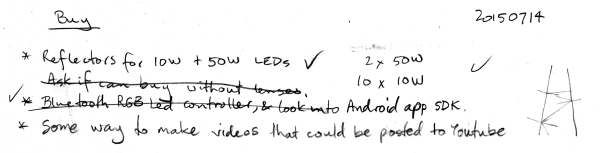 Buy 20150714
* Reflectors for 10W + 50W LEDs ✓ 2 x 50W ✓
Ask if can buy without lenses. 10 x 10W
✓ * Bluetooth RGB Led controller, & look into Android app SDK.
* Some way to make videos that could be posted to Youtube